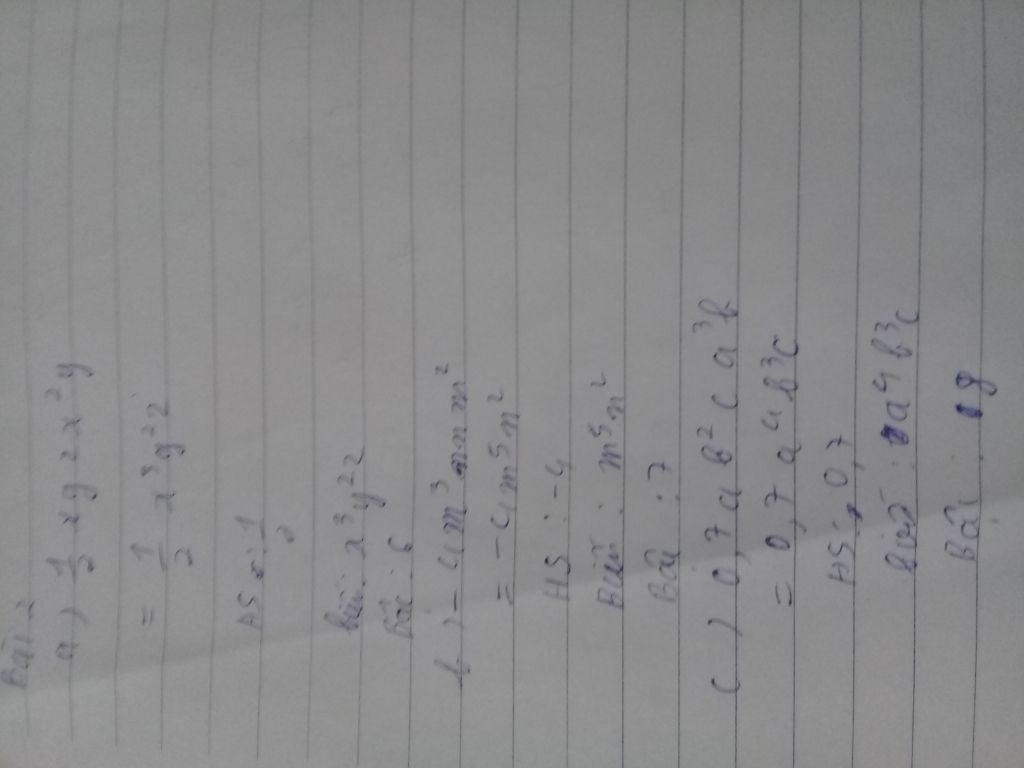 Bài 2
a) 1/2 xyzx²y
= 1/2 x³y²z
HS : 1/2
biến : x³y²z
Bậc : 6
b) - 4m³ mnm²
= - 4m⁵n²
HS : -4
Biến : m⁵n²
Bậc : 7
c) 0,7ab²ca³b
= 0,7a⁴b³c
HS : 0,7
Biến : a⁴b³c
Bậc : 8